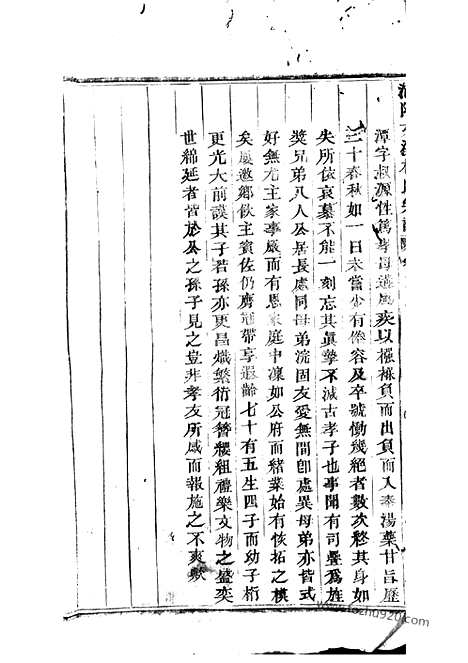 潭字叔源性篤孝母遘風疾以襁褓負而出負而入奉湯藥甘旨歷
三十春秋如一日未嘗少有惰容及卒號慟幾絕者數次終其身如
失所依哀慕不能一刻忘其眞摯不減古孝子也事聞有司疊爲旌
奬兄弟八人公居長處同母弟浣固友愛無間卽處異母弟亦皆式
好無尤主家事嚴而有恩家庭中凜如公府而緒業始有恢拓之模
矣屢邀鄉飲主賓佐仍膺冠帶享遐齡七十有五生四子而幼子桁
更光大前謨其子若孫亦更昌熾繁衍冠簪纓組禮樂文物之盛奕
世綿延者皆於公之孫子見之豈非孝友所感而報施之不爽歟
www.fozhu920.com